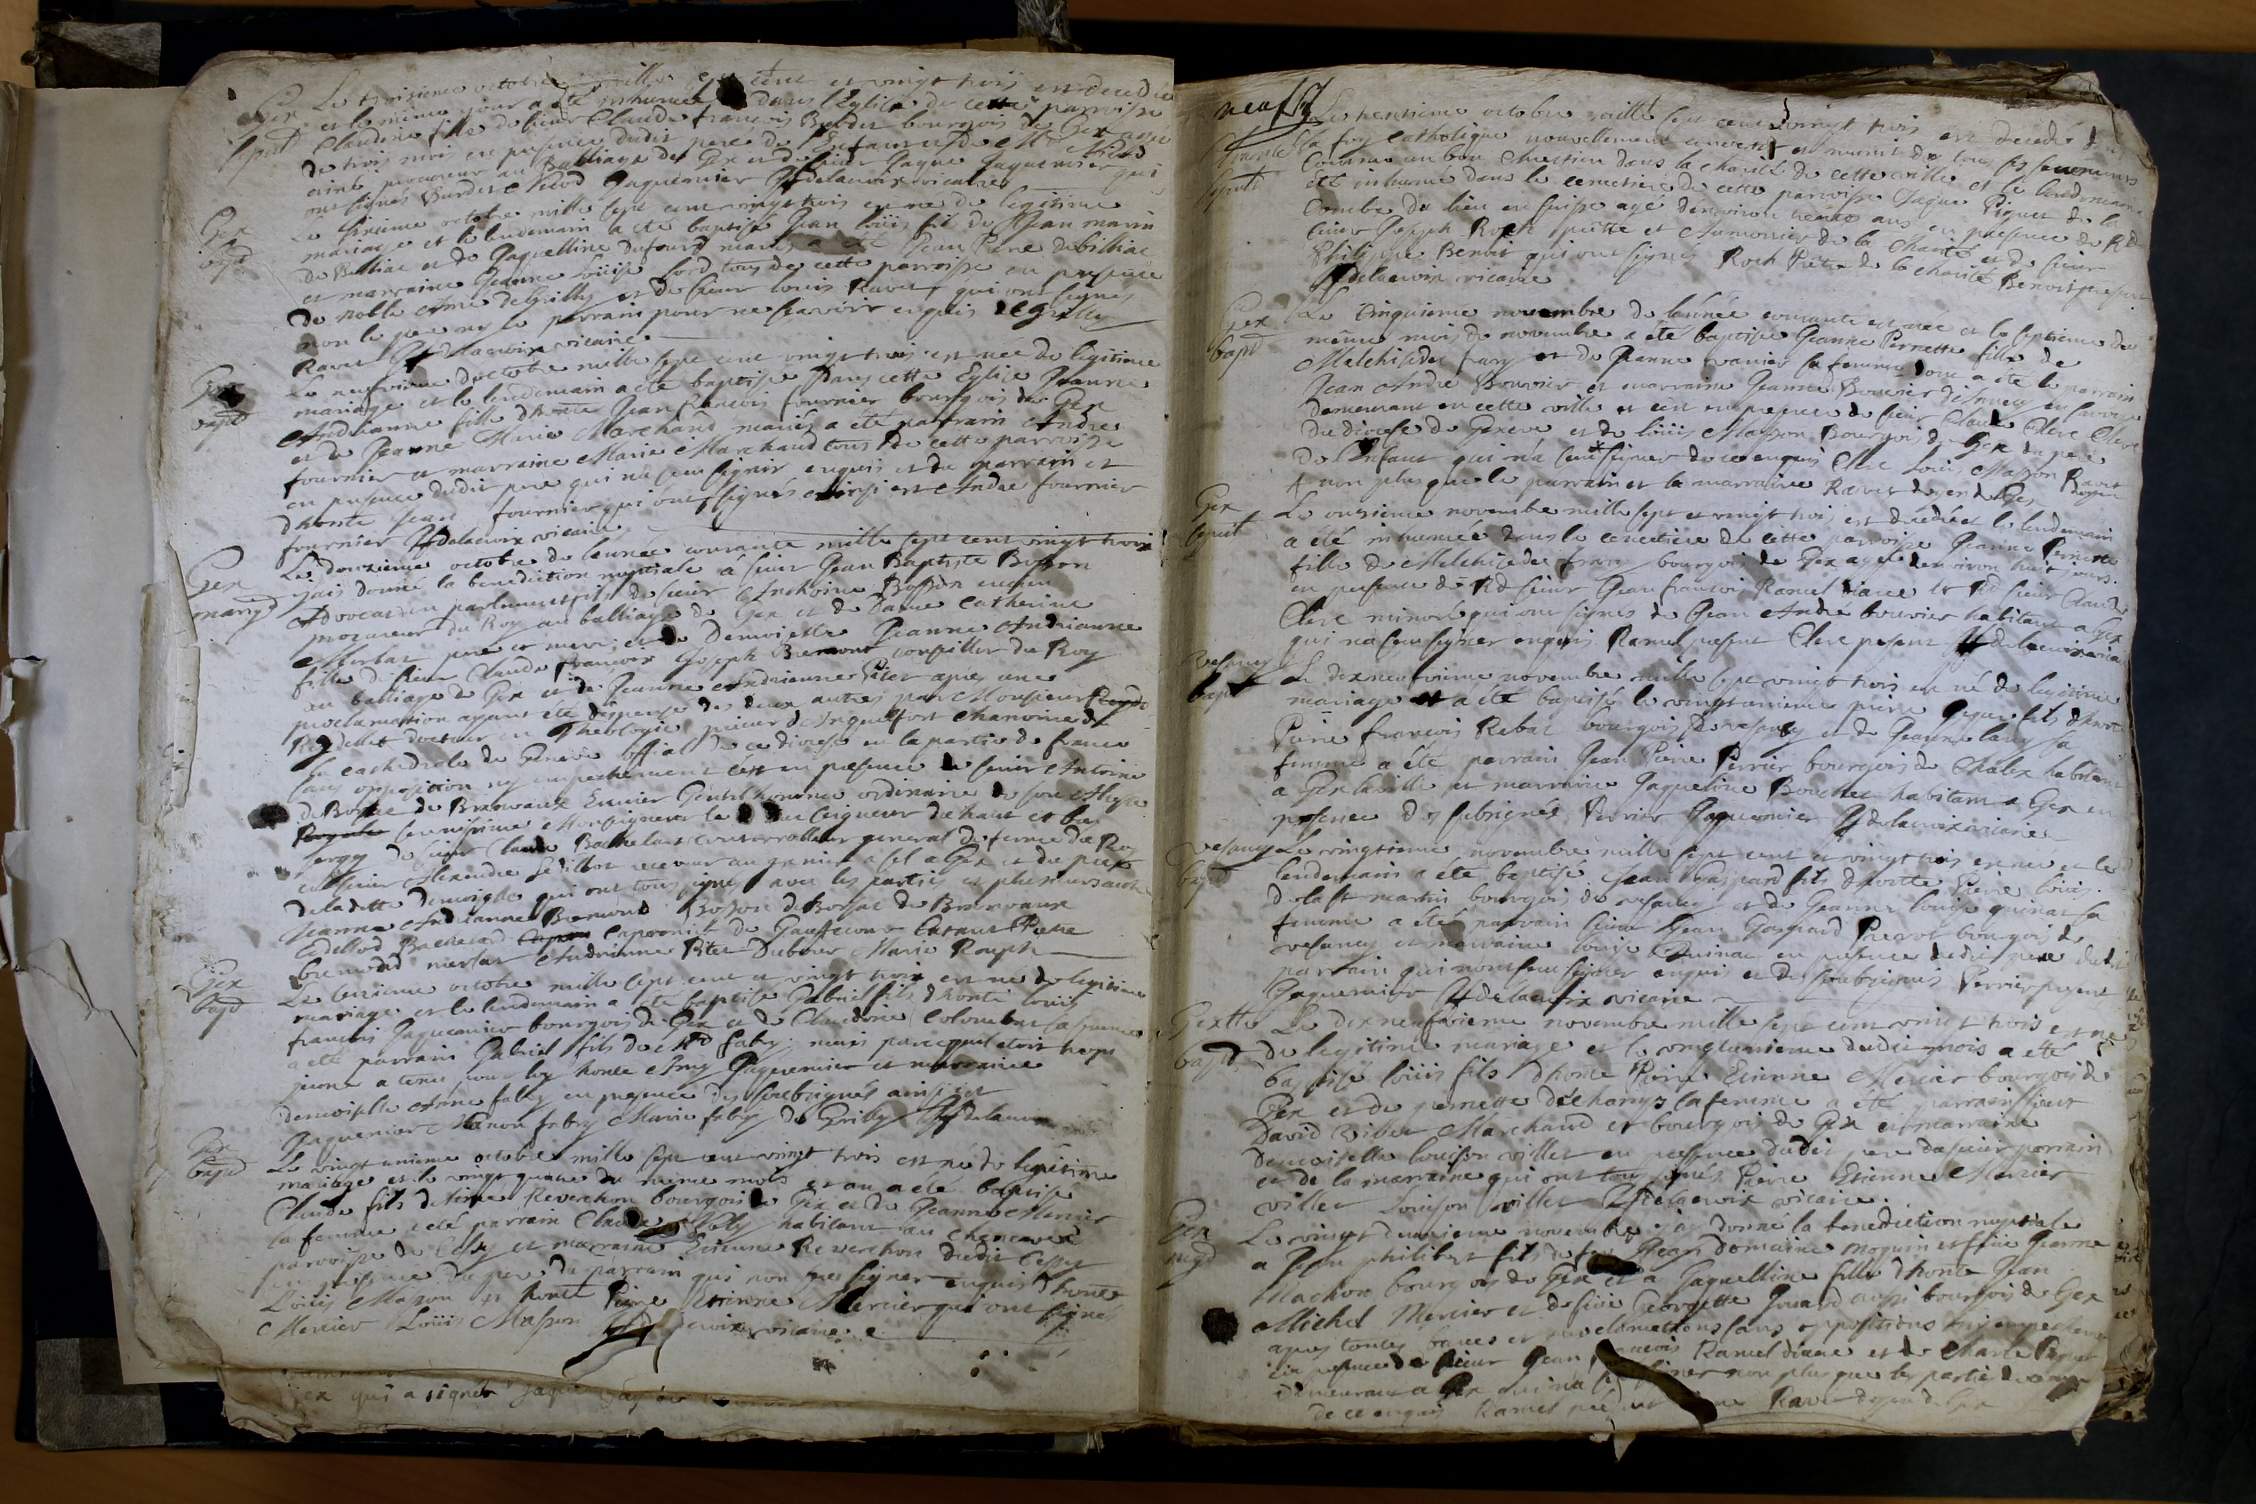 Gex Le troisieme octobre mille sept cent et vingt trois est decedée
sepult et le meme jour a été inhumée dans l'Eglise de cette parroisse
Claudine fille de sieur Claude françois Burdet bourgeois de Gex agée
de trois mois en presence dudit pere de l'Enfant et de Mr Nicod
procureur au balliage de Gex et de sieur Jaque Jaquemier qui
ont signés Burdet Nicod Jaquemier Delacroix vicaire
Gex Le sixieme octobre mille sept cent vingt trois est né de legitime
bapt mariage et le lendemain a été baptisé Jean loüis fils de Jean marin
de Balliac et de Jaquelline dufourd mariés a été Jean Pierre debilliac
et marraine Jeanne loüise tous de cette parroisse en presence
de noble Amé deGrilly et de sieur louis Ravet qui ont signés
non le pere ny le parrain pour ne scavoir enquis deGrilly
Ravet Delacroix vicaire
Gex Le neufvieme d'octobre mille sept cent vingt trois est née de legitime
bapt mariage et le lendemain a été baptisée dans cette Eglise Jeanne
Andrianne fille d'honte Jean francois fournier bourgeois de Gex
et de Jeanne Marie Marchand mariés a été parrain Andre
fournier et marraine Marie Marchand tous de cette parroisse
en presence dudit pere qui n'a sceu signer enquis et du parrain et
d'honte Jean fournier qui ont signés ainsi est Andre fournier
fournier Delacroix vicaire
Gex Le douzieme octobre de l'année courante mille sept cent vingt trois
mariage j'ais donné la benediction nuptiale a sieur Jean Baptiste Bosson
Advocat en parlement fils de sieur Anthoine Bosson ancien
procureur du Roy au balliage de Gex et de Dame Catherine
Merlat pere et mere; et de Demoiselle Jeanne Andrianne
fille de sieur Claude francois Joseph Bremont conseiller du Roy
au balliage de Gex et de Jeanne Andrienne Pitet apres une
proclamation ayant été dispensé des deux autres par Monsieur
Reydellet docteur en Theologie prieur d'Inquelfort chanoine de
la cathedrale de Geneve official de ce diocese en la partie de france
sans opposition ny empechement c'est en presence de sieur Antoine
de Bosse de Bonnevaux Ecuier Gentilhomme ordinaire de son Altesse
serenissime Monseigneur le Duc seigneur de haut et bas
sergy de sieur Claude Bachelard controrolleur general des fermes du Roy
et sieur Alexandre Sedillot receveur au grenier a sel a Gex et du pere
de la ditte demoiselle qui ont tous signés avec les parties et plusieurs autres
Jeanne Andrianne Bremont Bosson de Bosse de Bonnevaux
Sedillod Bachelard Caproni de Gauffecourt
bremond merlat Andrianne Pitet Dubois Marie Rouph
Gex Le treizieme octobre mille sept cent et vingt trois est ne de legitime
bapt mariage et le lendemain a été baptisé Gabriel fils d'honte loüis
francois Jaquemier bourgeois de Gex et de Claudine Colombet sa femme
a été parrain Gabriel fils de Mr fabry; mais parcequ'il etoit trop
jeune a tenu pour luy honte Amy Jaquemier et marraine
demoiselle Anne fabry en presence des soubsignés ainsi est
Jaquemier Manon fabry Marie fabry de Grilly Delacroix
Gex Le vingt unieme octobre mille sept cent vingt trois est né de legitime
bapt mariage et le vingt quatre du meme mois et an a été baptisé
Claude fils de Reverchon bourgeois de Gex et de Jeanne Mercier
sa femme a été parrain Claude habitant au
parroisse de Cessy et marraine Etienne Reverchon dudit Cessy
en presence du pere du parrain qui n'ont sceu signer enquis d'honte
Loüis Masson et honte Pierre Etienne Mercier qui ont signés
Mercier Loüis Masson Delacroix vicaire
Gex qui a signés Jaque
Le trentieme octobre mille sept cent vingt trois est decedé dans
la foy Catholique nouvellement converti et munit de tous ses sacrements
sepult comme un bon chrestien dans la charité de cette ville et le lendemain
été inhumé dans le cemetiere de cette parroisse Jaque Piguet de la
Combe du lieu en suisse agé d'environ trente ans en presence de Rd
sieur Joseph Roch prètre et Aumonier de la charité et de sieur
Philippe Benoit qui ont signés Roch Prètre de la charité Benoit present
Delacroix vicaire
Gex Le Cinquieme novembre de l'année courante est née et le septieme du
bapt meme mois de novembre a été baptisée Jeanne Pernette fille de
Melchisedec frary et de Jeanne tranier sa femme dont a été le parrain
Jean Andre Bouvier et marraine Jeanne Bouvier d'Annecy en savoye
demeurant en cette ville et c'est en presence de sieur Claude Clerc Clerc
du diocese de Geneve et de loüis Masson Bourgeois de Gex du pere
de l'Enfant qui n'a sceu signer de ce enquis Clerc Loüis Masson Ravet
non plus que le parrain et la marraine Ravet doyen de Gex
Gex Le onzieme novembre mille sept et vingt trois est decedée et le lendemain
sepult a été inhumée dans le cemetiere de cette parroisse Jeanne Pernette
fille de Melchisedec frary bourgeois de Gex agée d'environ huit jours
en presence de Rd sieur Jean francois Ramel diacre et Rd sieur Claude
Clerc minoré qui ont signés de Jean André bouvier habitant a Gex
qui n'a sceu signer enquis Ramel present Clerc present Delacroix vicaire
vesancy Le dix neufvieme novembre mille sept vingt trois est né de legitime
bapt mariage et a été baptisé le vingtunieme pierre fils d'honte
Pierre francois Rebat bourgeois de vesancy et de Jeanne lavy sa
femme a été parrain Jean Pierre Perrier bourgeois de Chalex habitant
a Gex la ville et marraine Jaqueline Bouchet habitant a Gex en
presence des subsignés Perrier Jaquemier Delacroix vicaire
vesancy Le vingtieme novembre mille sept cent et vingt trois est né et le
bapt lendemain a été baptisé Jean gaspard fils d'honte Pierre loüis
delast martin bourgeois de vesancy et de Jeanne loüise quinat sa
femme a été parrain sieur Jean Gaspard Prevot bourgeois de
vesancy et marraine loüise Quinat en presence dudit pere dudit
parrain qui n'ont sceu signer enquis et des soubsignés Perrier present
Jaquemier Delacroix vicaire
Gex Le dix neufvieme novembre mille sept cent vingt trois est né
bapt de legitime mariage et le vingtunieme dudit mois a été
baptisé loüis fils d'honte Pierre Etienne Mercier bourgeois de
Gex et de pernette dechamps sa femme a été parrain sieur
David viber Marchand et bourgeois de Gex et marraine
Demoiselle louison villet en presence dudit pere du sieur parrain
et de la marraine qui ont tous signés Pierre Etienne Mercier
villet Louison villet Delacroix vicaire
Gex Le vingt deuxieme novembre j'ay donné la benediction nuptiale
a Jean philibert fils de feu Jean Domaine moquin et feüe Jeanne
Machon bourgeois de Gex et a Jaquelline fille d'honte Jean
Michel Mercier et de feüe Georgette Girard aussi bourgeois de Gex
apres toutes bancs et proclamations sans oppositions ny empechement
en presence de sieur Jean francois Ramel diacre et de Charle
demeurant a Gex qui n'a sceu signer non plus que les partie de
de ce enquis Ramel present Ravet doyen de Gex